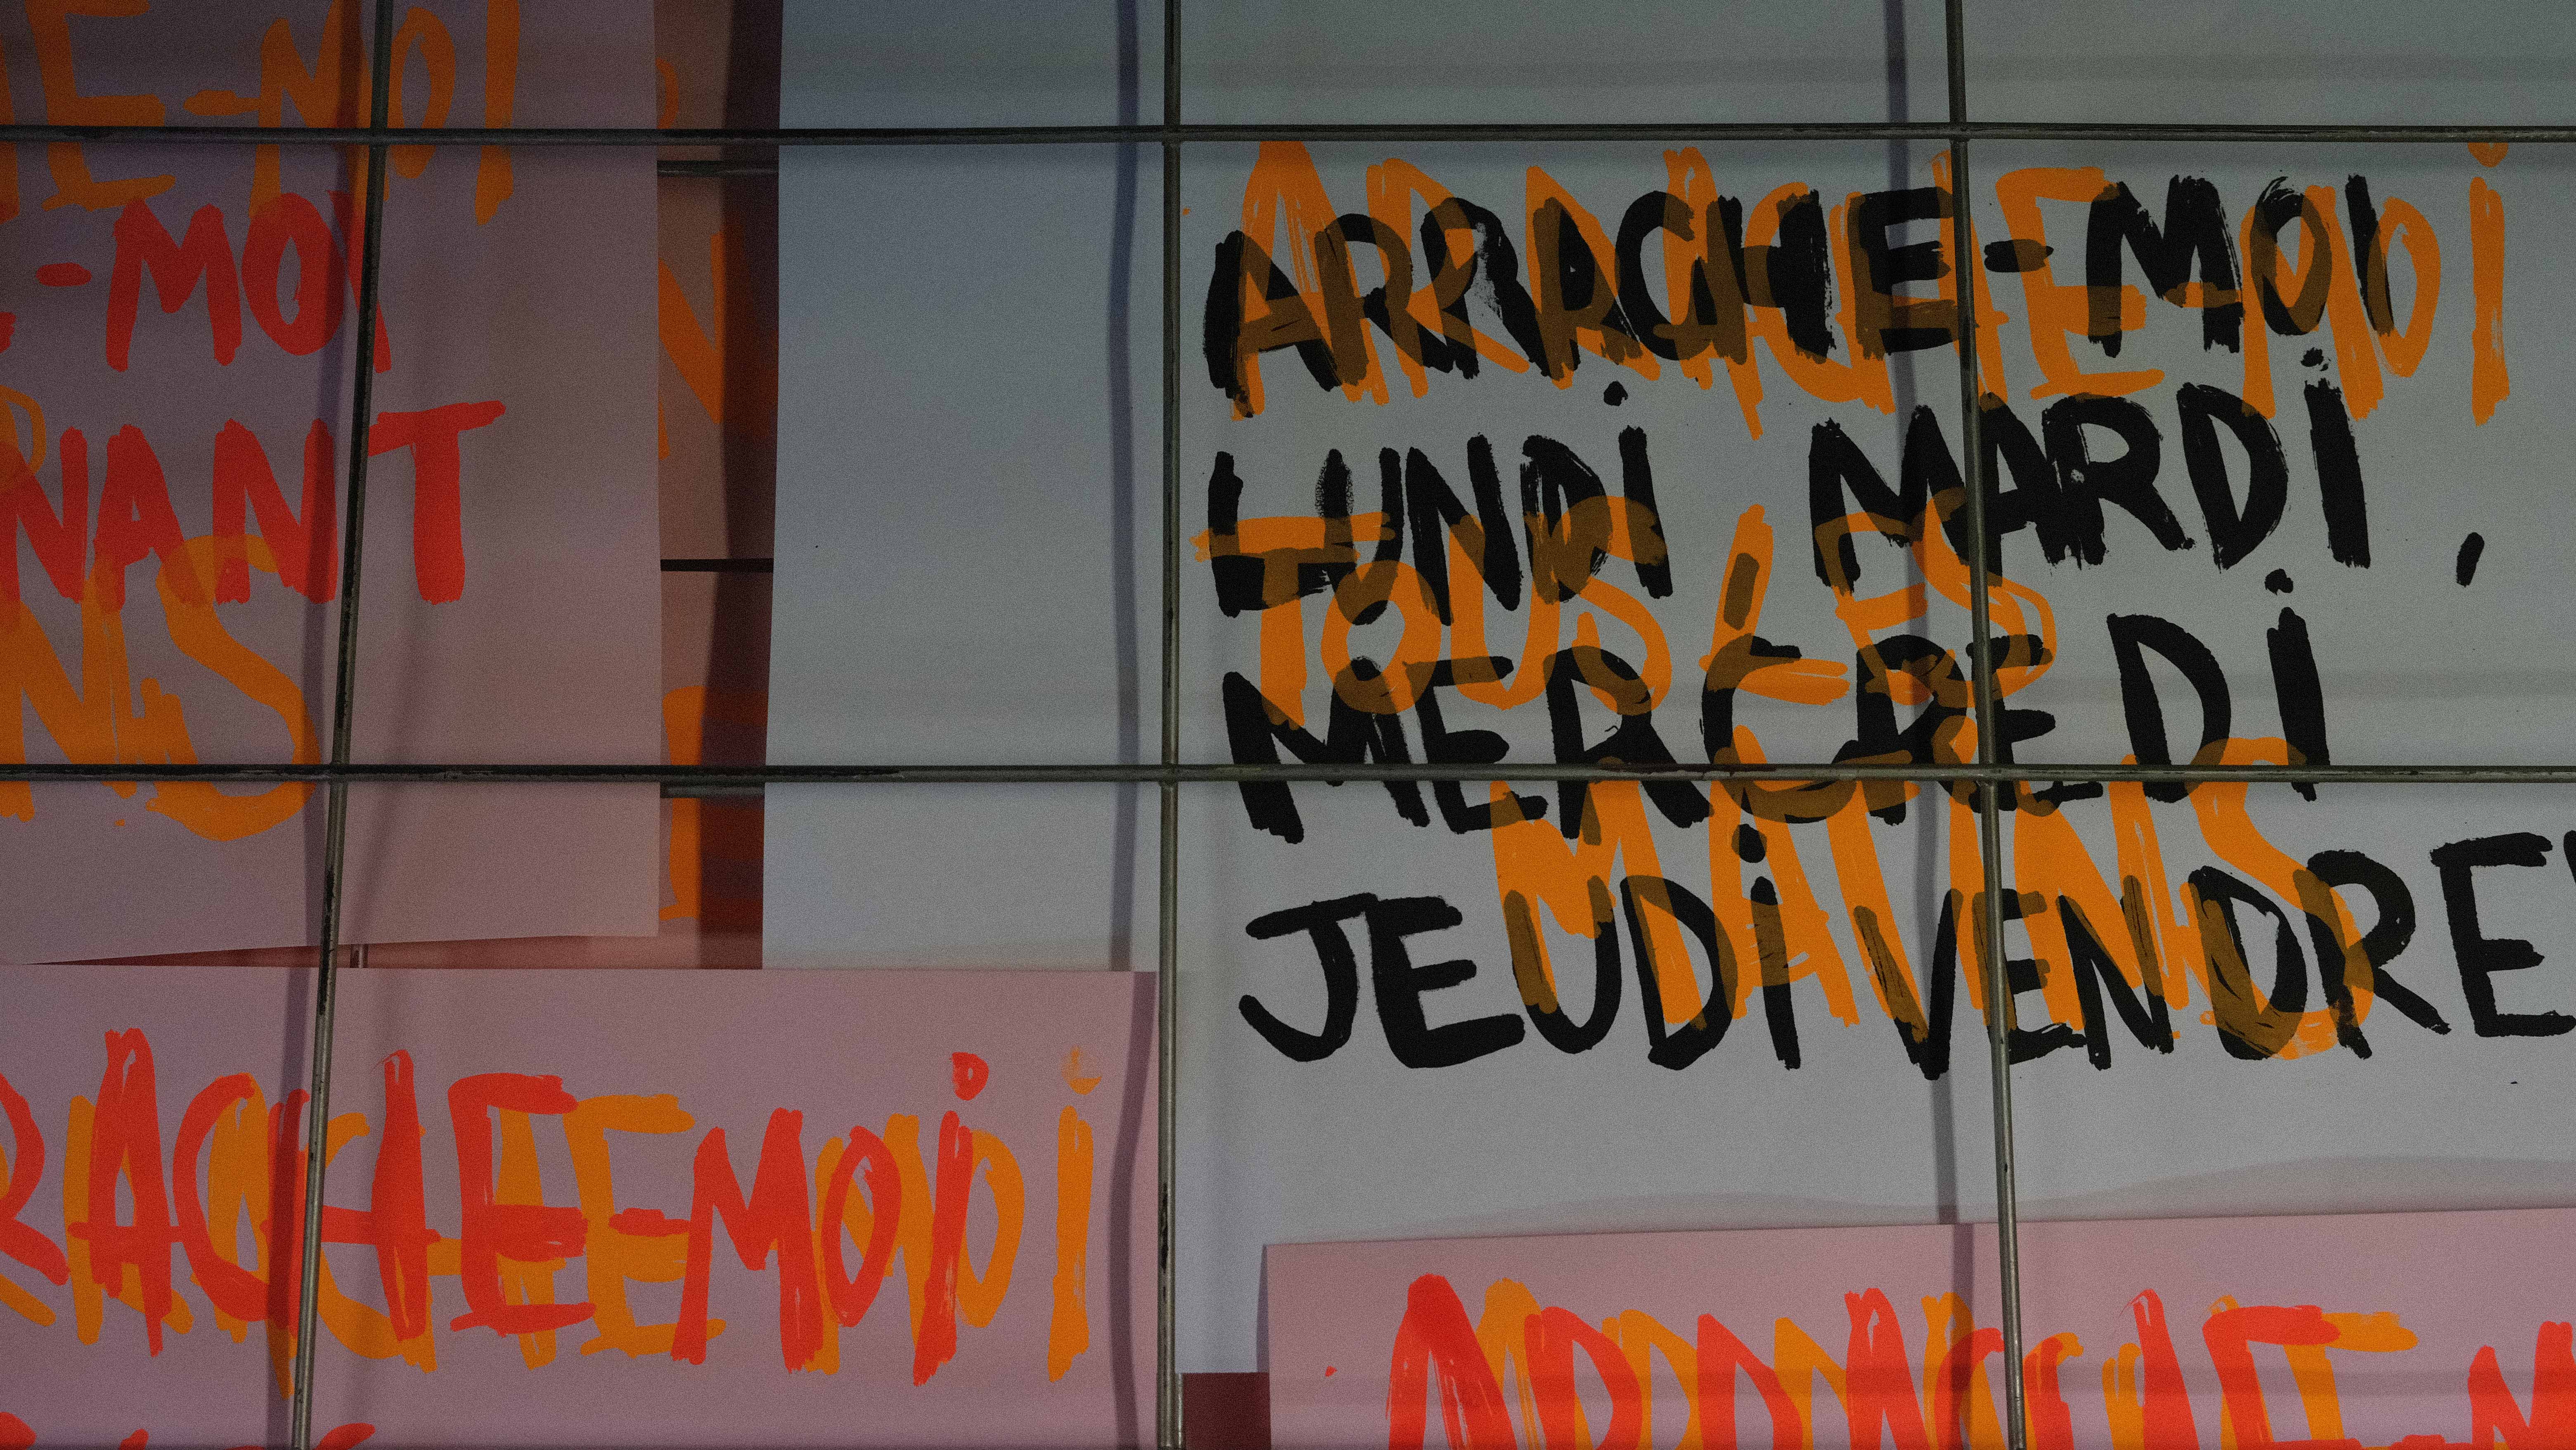 E-MOI
-MOI
NANT
NS
ARRACHE-MOI
ARRACHE-MOi
LUNDi MARDi,
TOUS LES
MERCREDi
MATiNS
JEUDi VENDRE
RACHE-MOi
ACHE-MOi